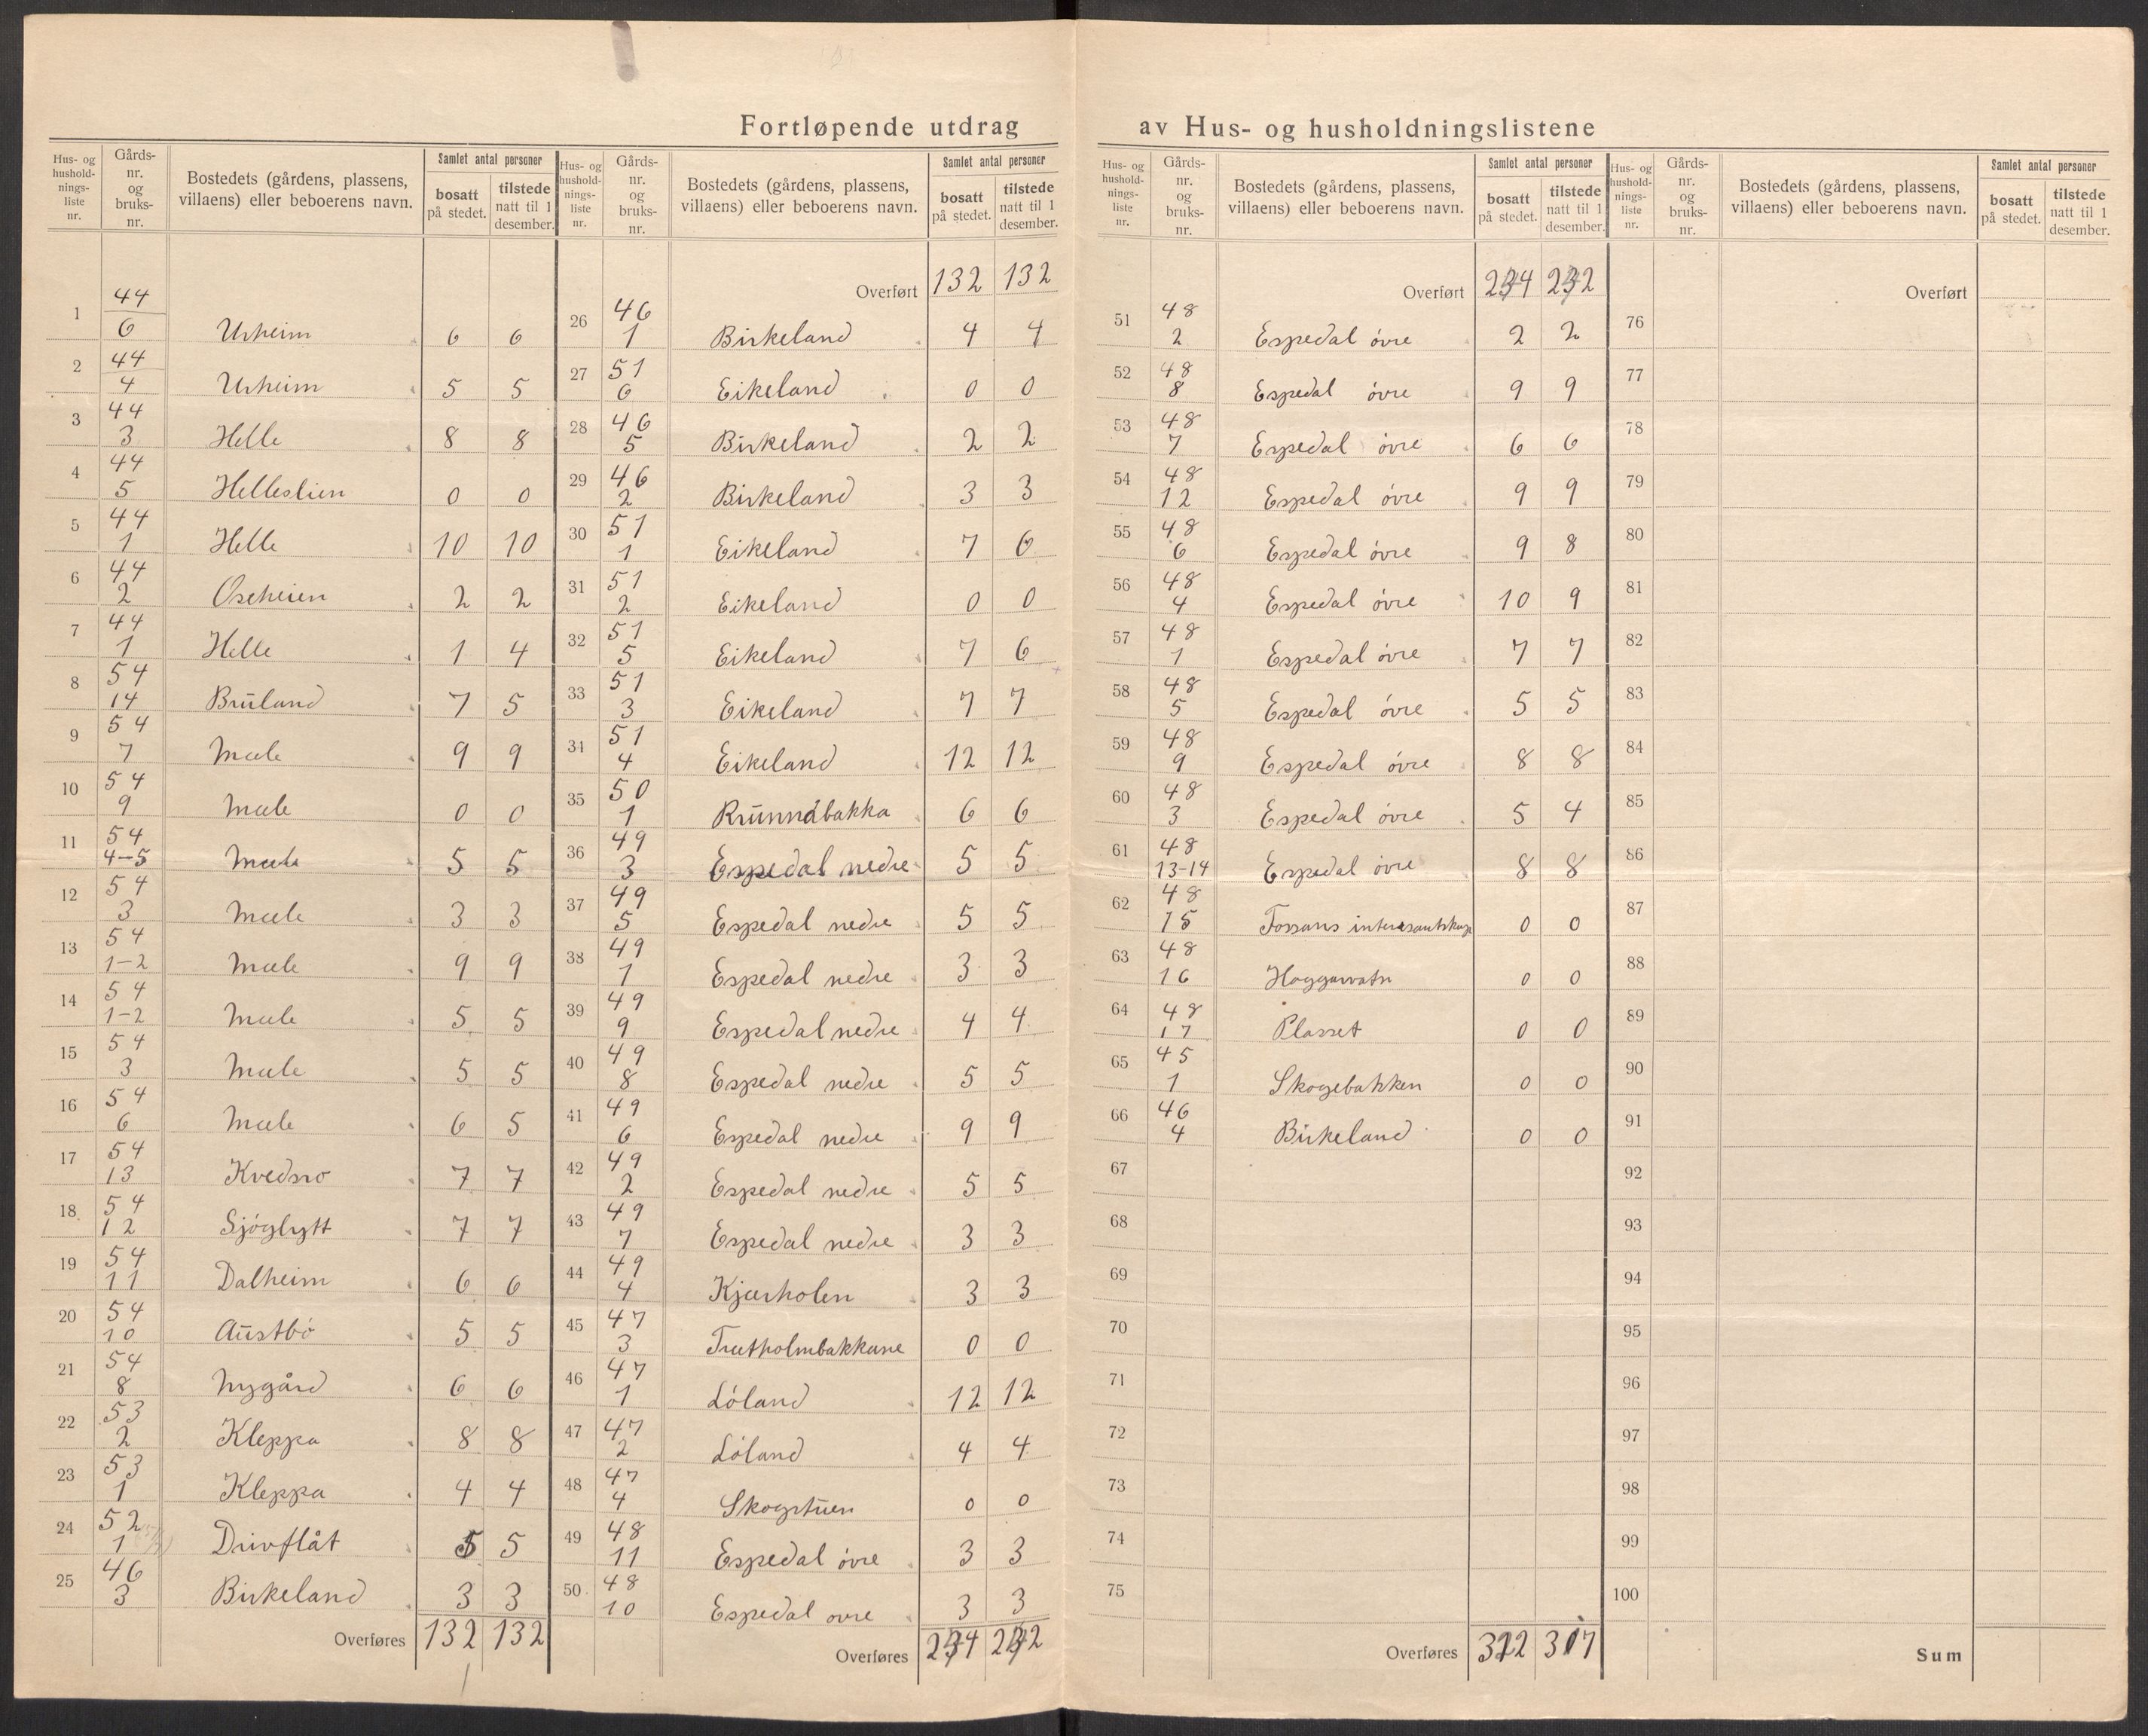 Fortløpende utdrag av Hus- og husholdningslistene
Hus- og husholdningsliste nr. | Gårdsnr. og bruksnr. | Bostedets (gårdens, plassens, villaens) eller beboerens navn. | Samlet antal personer bosatt på stedet. | tilstede natt til 1 desember.
1 44/6 Urheim 6 6
2 44/4 Urheim 5 5
3 44/3 Helle 8 8
4 44/5 Helleslien 0 0
5 44/1 Helle 10 10
6 44/2 Oseheien 2 2
7 44/1 Helle 1 4
8 54/14 Bruland 7 5
9 54/7 Mæle 9 9
10 54/9 Mæle 0 0
11 54/4-5 Mæle 5 5
12 54/3 Mæle 3 3
13 54/1-2 Mæle 9 9
14 54/1-2 Mæle 5 5
15 54/3 Mæle 5 5
16 54/6 Mæle 6 5
17 54/13 Kvedsro 7 7
18 54/12 Sjöglytt 7 7
19 54/11 Dalheim 6 6
20 54/10 Austbö 5 5
21 54/8 Nygård 6 6
22 53/2 Kleppa 8 8
23 53/1 Kleppa 4 4
24 52/1 Drivflåt 5 5
25 46/3 Birkeland 3 3
Overføres 132 132
Hus- og husholdningsliste nr. | Gårdsnr. og bruksnr. | Bostedets (gårdens, plassens, villaens) eller beboerens navn. | Samlet antal personer bosatt på stedet. | tilstede natt til 1 desember.
Overført 132 132
26 46/1 Birkeland 4 4
27 51/6 Eikeland 0 0
28 46/5 Birkeland 2 2
29 46/2 Birkeland 3 3
30 51/1 Eikeland 7 6
31 51/2 Eikeland 0 0
32 51/5 Eikeland 7 6
33 51/3 Eikeland 7 7
34 51/4 Eikeland 12 12
35 50/1 Runnåbakka 6 6
36 49/3 Espedal nedre 5 5
37 49/5 Espedal nedre 5 5
38 49/1 Espedal nedre 3 3
39 49/9 Espedal nedre 4 4
40 49/8 Espedal nedre 5 5
41 49/6 Espedal nedre 9 9
42 49/2 Espedal nedre 5 5
43 49/7 Espedal nedre 3 3
44 49/4 Kjærholen 3 3
45 47/3 Trætholmbakkane 0 0
46 47/1 Löland 12 12
47 47/2 Löland 4 4
48 47/4 Skogstuen 0 0
49 48/11 Espedal övre 3 3
50 48/10 Espedal ovre 3 3
Overføres
Hus- og husholdningsliste nr. | Gårdsnr. og bruksnr. | Bostedets (gårdens, plassens, villaens) eller beboerens navn. | Samlet antal personer bosatt på stedet. | tilstede natt til 1 desember.
Overført
51 48/2 Espedal övre 2 2
52 48/8 Espedal övre 9 9
53 48/7 Espedal övre 6 6
54 48/12 Espedal övre 9 9
55 48/6 Espedal övre 9 8
56 48/4 Espedal övre 10 9
57 48/1 Espedal övre 7 7
58 48/5 Espedal övre 5 5
59 48/9 Espedal övre 8 8
60 48/3 Espedal övre 5 4
61 48/13-14 Espedal övre 8 8
62 48/15 Fossans 0 0
63 48/16 Haggavatn 0 0
64 48/17 Plasset 0 0
65 45/1 Skogebakken 0 0
66 46/4 Birkeland 0 0
67
68
69
70
71
72
73
74
75
Overføres
Hus- og husholdningsliste nr. | Gårdsnr. og bruksnr. | Bostedets (gårdens, plassens, villaens) eller beboerens navn. | Samlet antal personer bosatt på stedet. | tilstede natt til 1 desember.
Overført
76
77
78
79
80
81
82
83
84
85
86
87
88
89
90
91
92
93
94
95
96
97
98
99
100
Sum